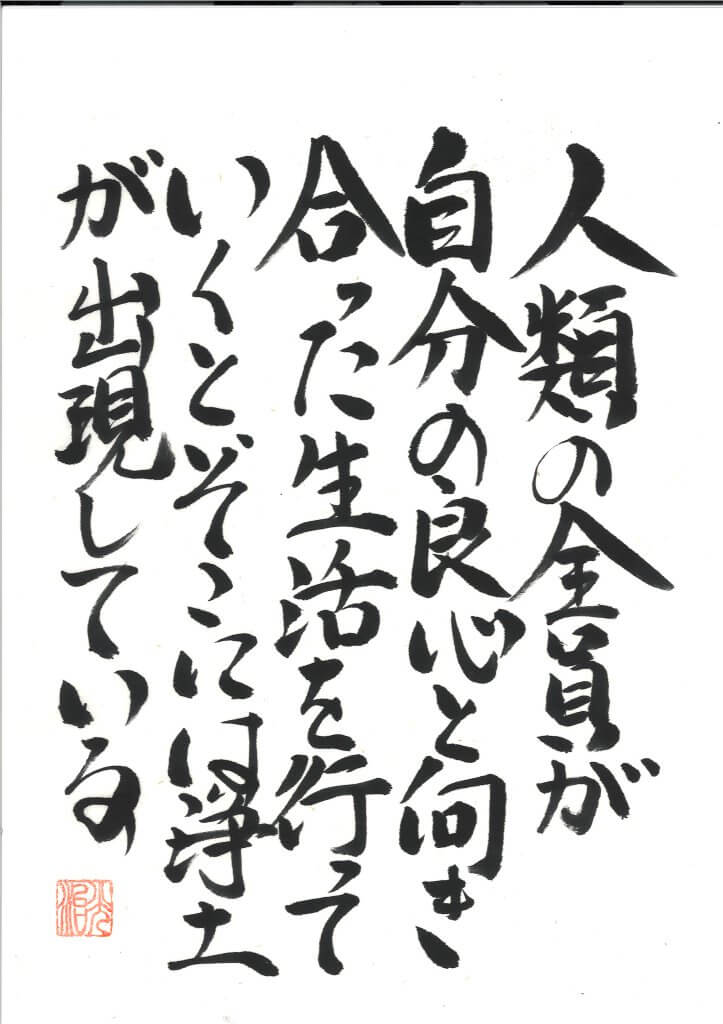 人類の全員が
自分の良心と向き
合った生活を行って
いくとそこには浄土
が出現している